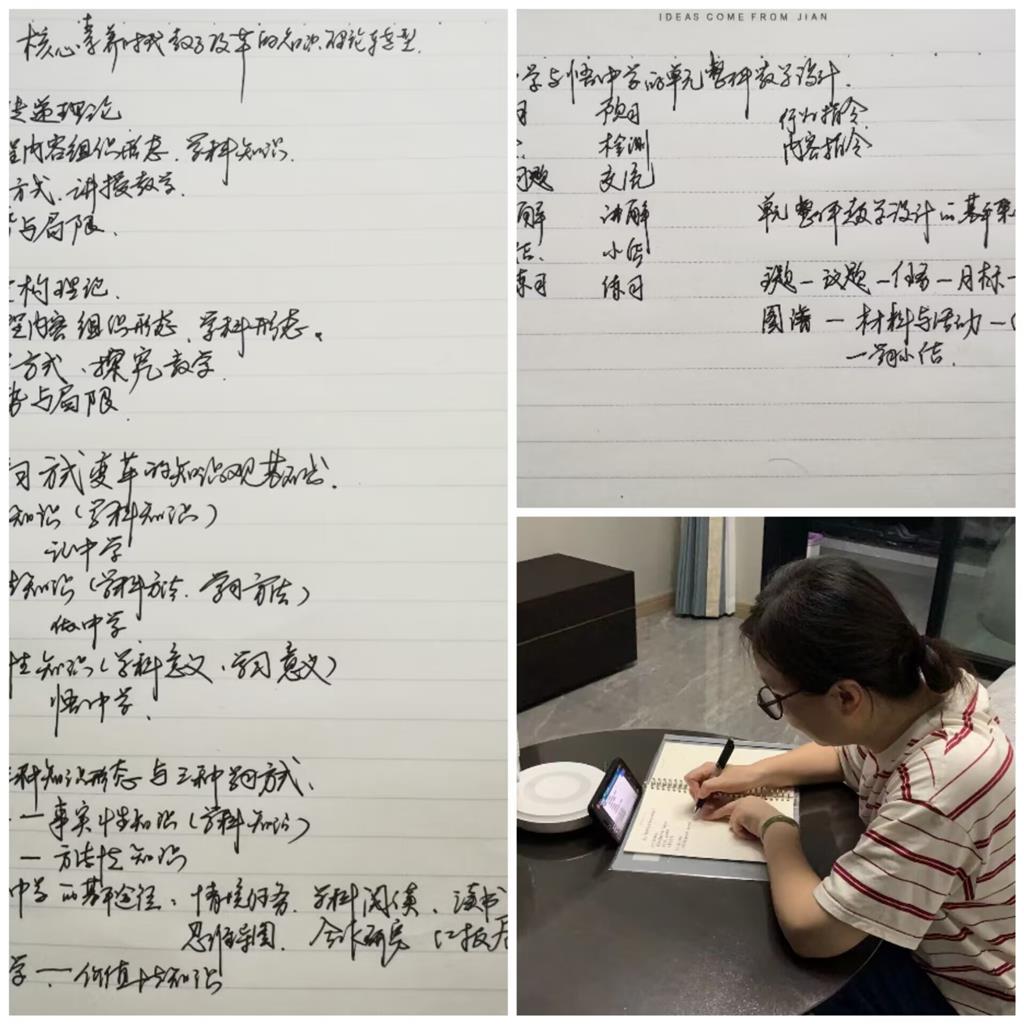 核心素养时代教学改革的知识理论转型
递理论
内容组织形态、学科知识.
方式、讲授教学.
与局限.
构理论.
内容组织形态、学科形态。
方式、探究教学.
与局限.
方式变革的知识观基础.
知识(学科知识)
记中学
知识(学科方法、学习方法)
做中学
性知识(学科意义、学习意义)
悟中学.
种知识形态与三种学习方式、
一事实性知识(学科知识)
一方法性知识
中学的基本途径、情境任务、学科阅读、读书
思维导图、合作研究
学一价值性知识
IDEAS COME FROM JIAN
学与悟中学的单元整体教学设计.
习 预习 行为指令
检测 内容指令
交流
讲解 单元整体教学设计的基本
小结
练习 练习 议题一任务一目标一
图谱一材料与活动一
小结.